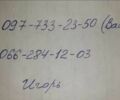 097-733-23-50 (Ва
066-284-12-03
Игорь